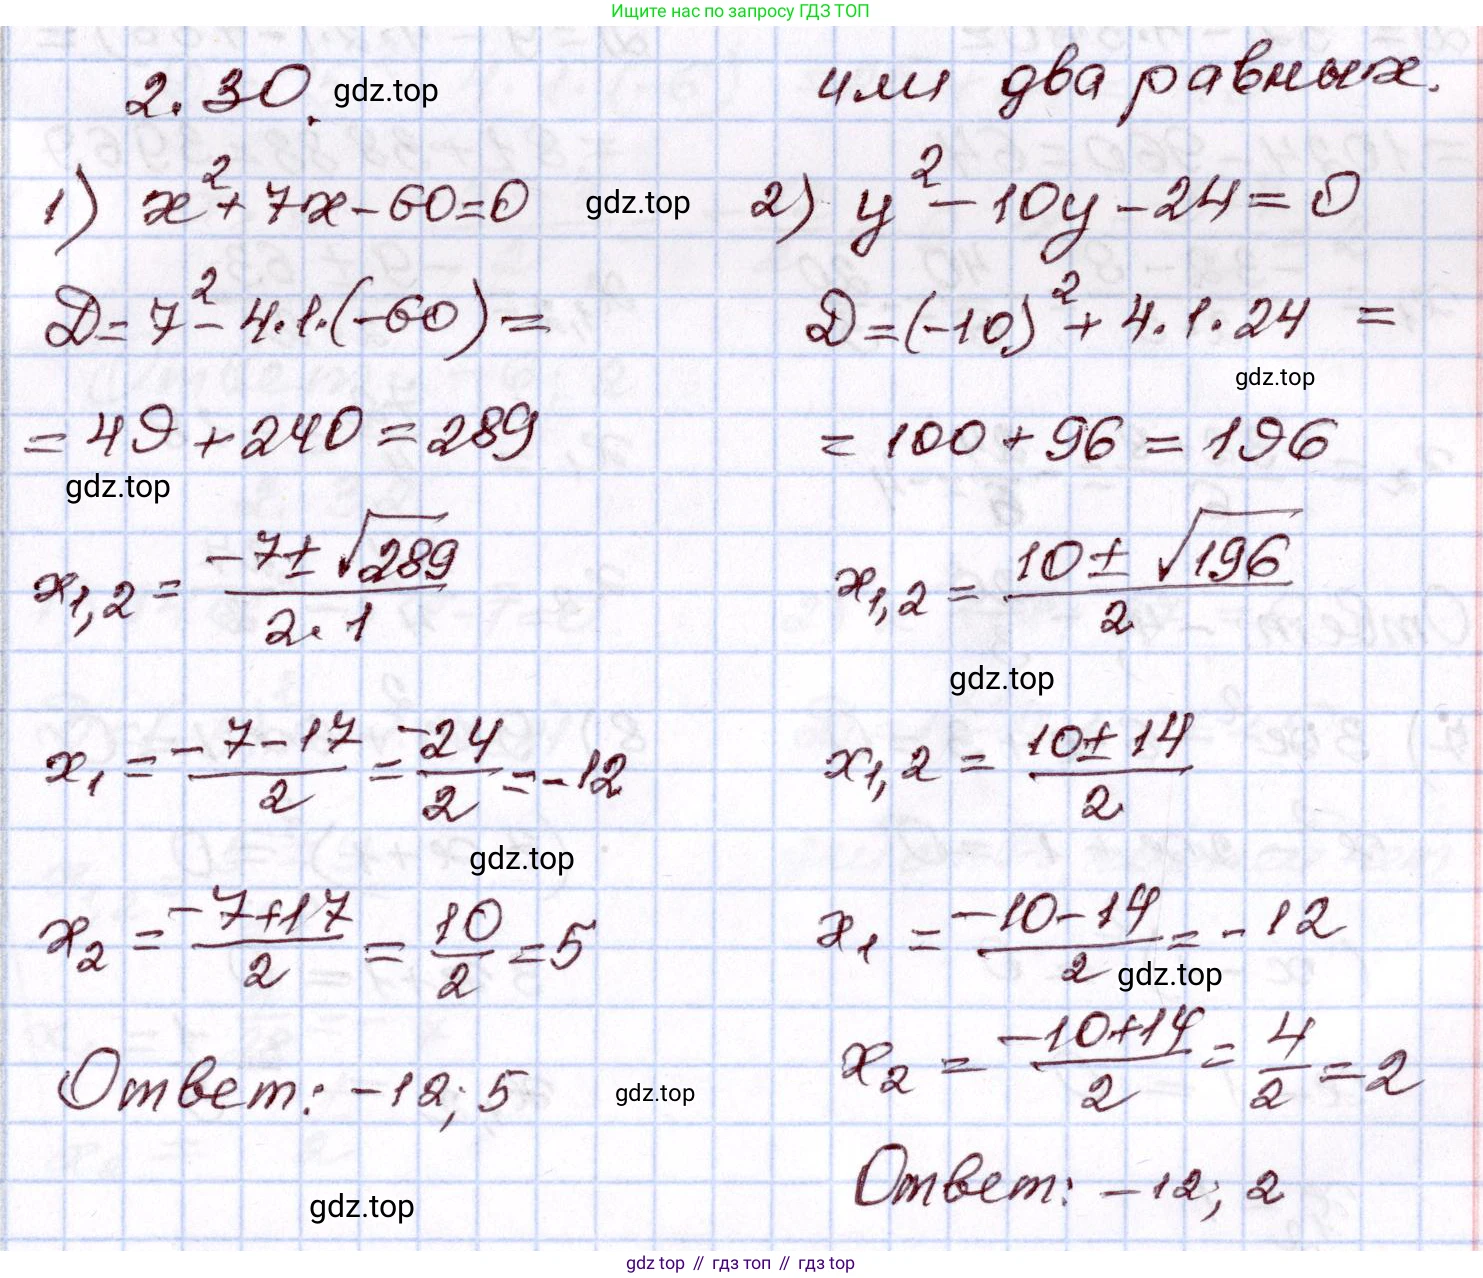 Ищите нас по запросу ГДЗ ТОП
2.30. gdz.top
1) x² + 7x - 60 = 0 gdz.top
D = 7² - 4·1·(-60) =
= 49 + 240 = 289
gdz.top
x₁,₂ = (-7 ± √289) / (2·1)
x₁ = (-7 - 17) / 2 = -24 / 2 = -12
gdz.top
x₂ = (-7 + 17) / 2 = 10 / 2 = 5
Ответ: -12; 5 gdz.top
gdz.top
или два равных.
2) y² - 10y - 24 = 0
D = (-10)² + 4·1·24 =
gdz.top
= 100 + 96 = 196
x₁,₂ = (10 ± √196) / 2
gdz.top
x₁,₂ = (10 ± 14) / 2
x₁ = (-10 - 14) / 2 = -12
gdz.top
x₂ = (-10 + 14) / 2 = 4 / 2 = 2
Ответ: -12; 2
gdz top // гдз топ // gdz top